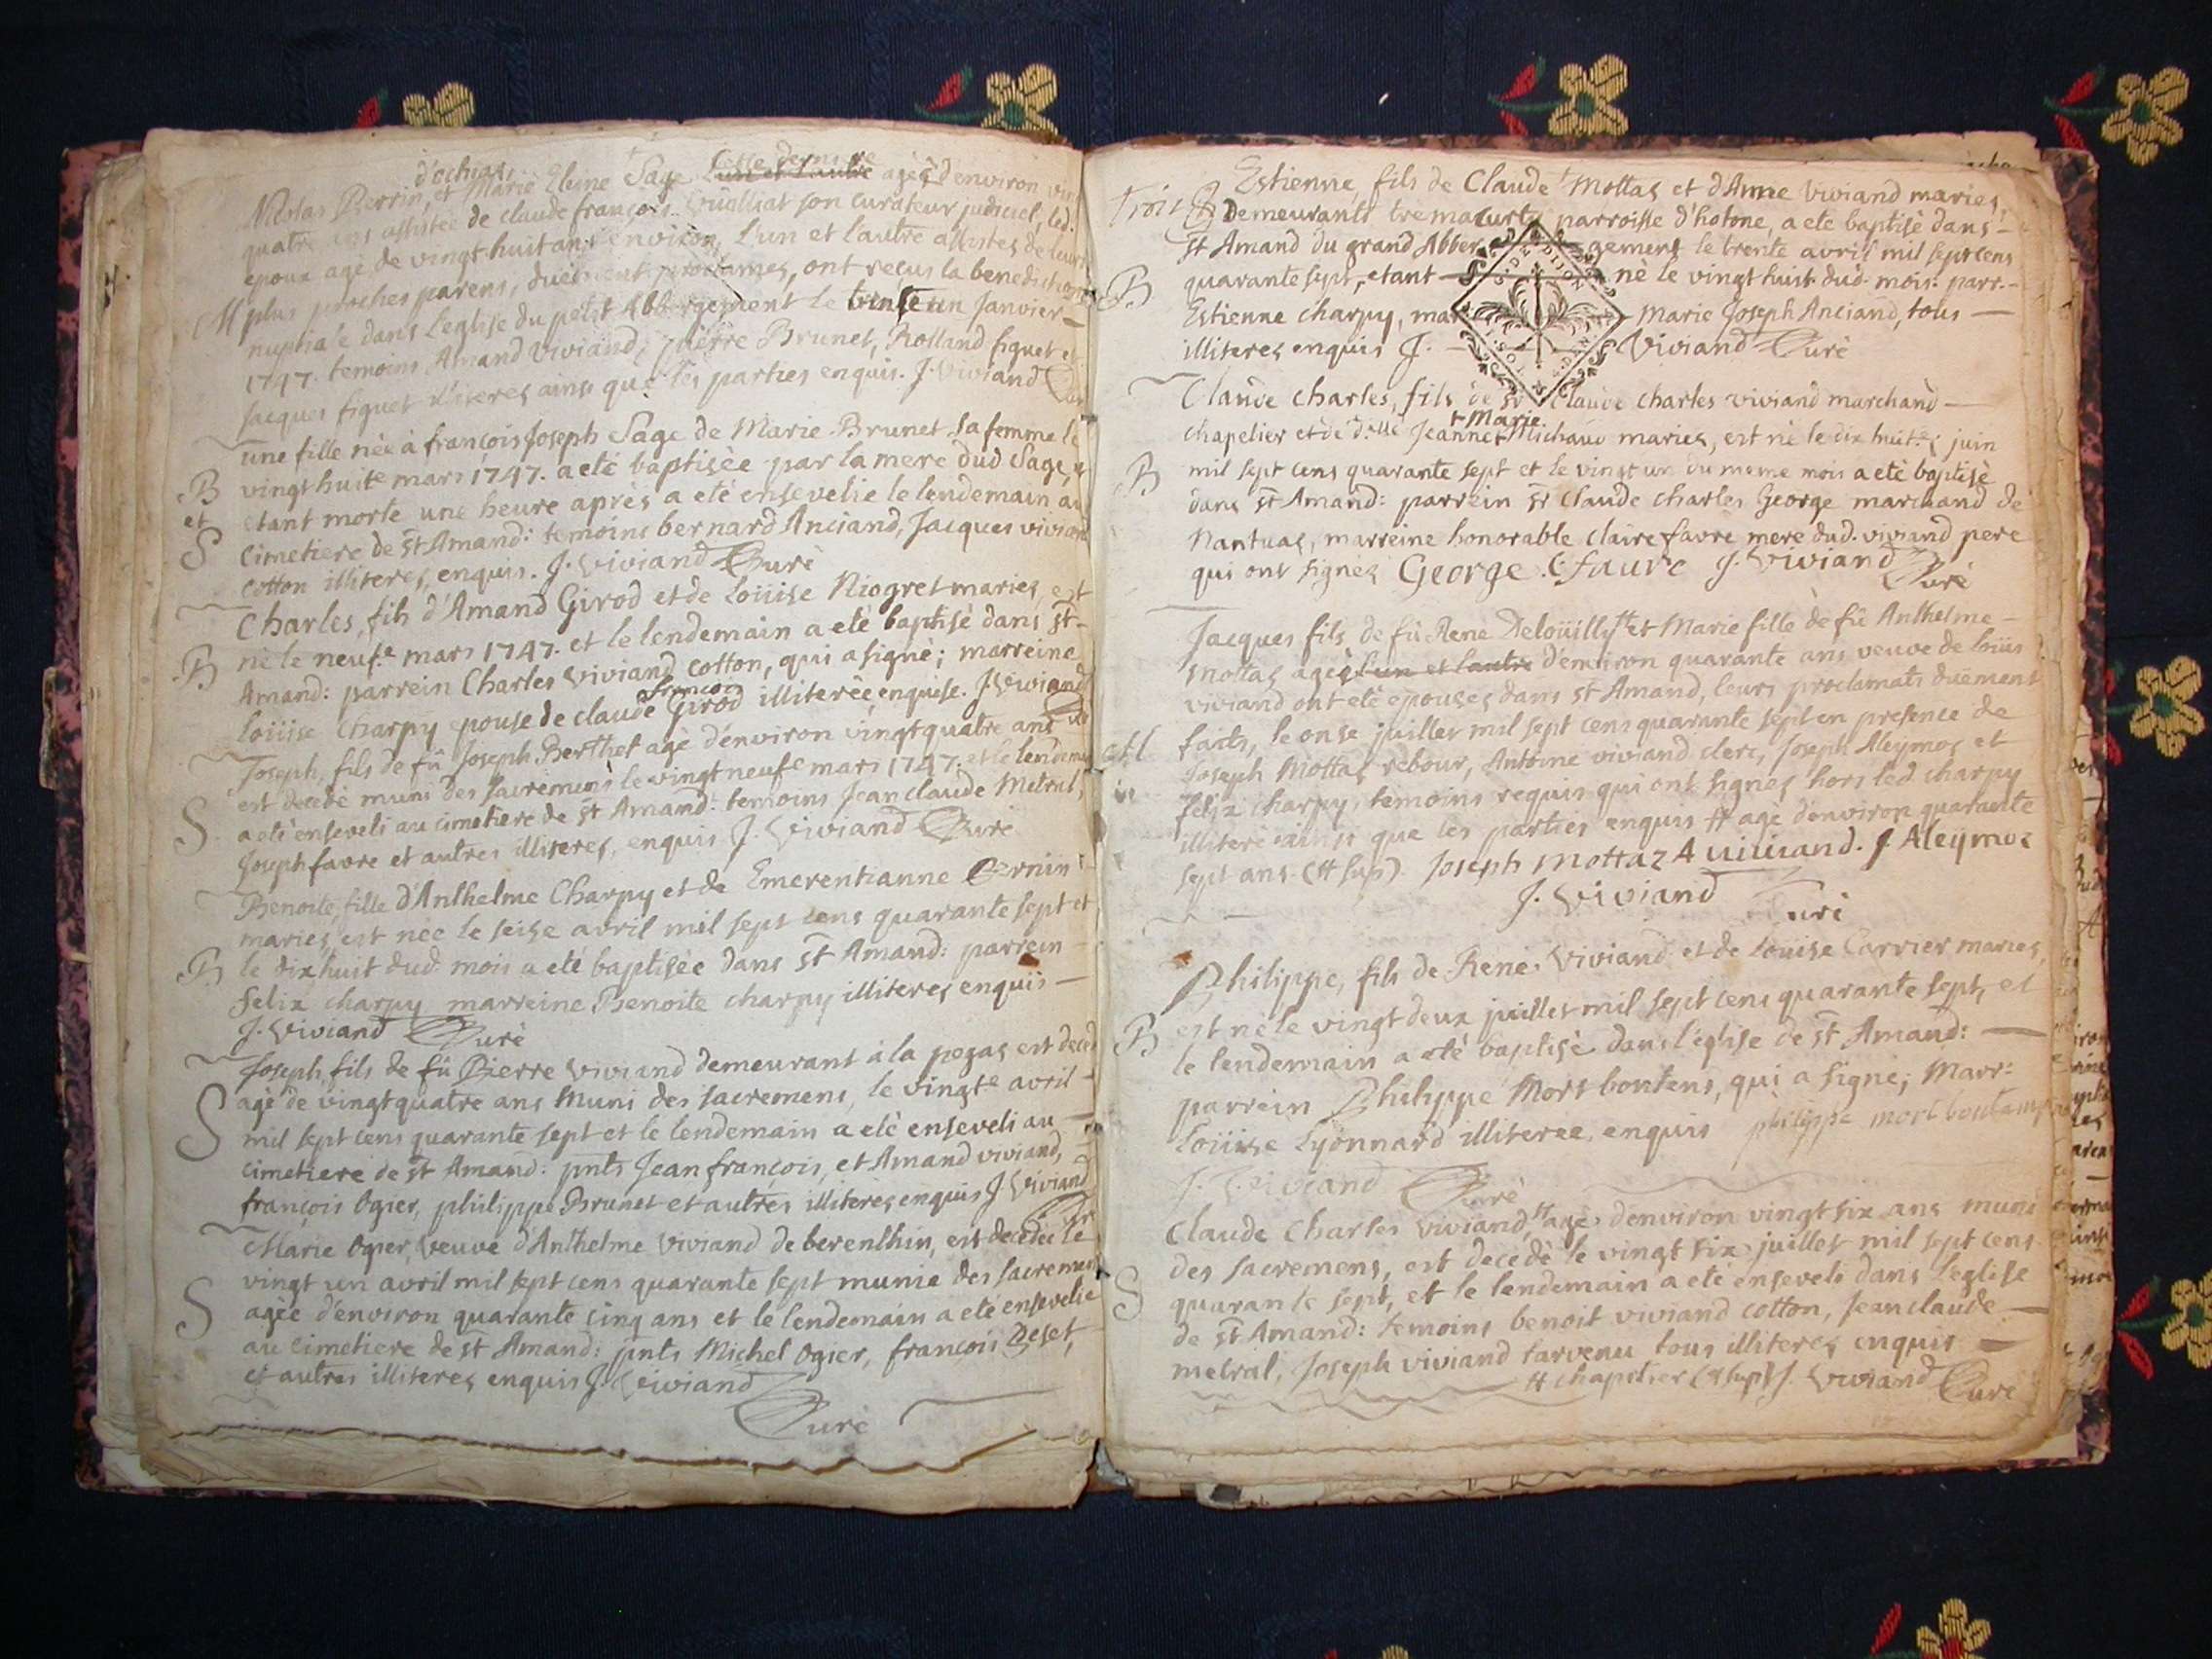 d'ochias
cette derniere
Nicolas Perrin, et Marie Elene Sage l'un et l'autre agée d'environ vint
quatre ans assistée de claude françois Vuailliat son curateur judiciel, led.
epoux agé de vingt huit ans environ, L'un et l'autre assistes de leurs
M plus proches parens, duëment proclamés, ont reçus la benediction
nuptiale dans L'eglise du petit Abbergement le trente un Janvier
1747. temoins Amand Viviand, pierre Brunet, Rolland figuet et
Jacques figuet illiteres ainsi que les parties enquis. J. Viviand Curé
une fille née à françois Joseph Sage de Marie Brunet sa femme le
B vingt huite mars 1747. a eté baptisée par la mere dud Sage, et
et etant morte une heure après a eté ensevelie le lendemain au
S Cimetiere de st Amand: temoins bernard Anciand, Jacques viviand
cotton illiteres, enquis. J. Viviand Curé
Charles, fils d'Amand Girod et de Loüise Niogret maries, est
B né le neufe mars 1747. et le lendemain a eté baptisé dans st
Amand: parrein Charles Viviand cotton, qui a signé; marreine
françois
Loüise Charpy epouse de claude Girod illiterée, enquise. J. Viviand Curé
Joseph, fils de fû Joseph Berthet agé d'environ vingt quatre ans
est decedé muni des sacremens le vingt neufe mars 1747. et le lendemain
S a eté enseveli au cimetiere de st Amand: temoins Jean claude Metral,
Joseph favre et autres illiteres, enquis J. Viviand Curé
Benoite, fille d'Anthelme Charpy et de Emerentianne Bernin
maries, est née le seise avril mil sept cens quarante sept et
B le dix huit dud. mois a eté baptisée dans st Amand: parrein
Felix charpy marreine Benoite charpy illiteres enquis
J. Viviand Curé
Joseph, fils de fû Pierre Viviand demeurant à la pezas est decedé
agé de vingt quatre ans muni des sacremens, le vingte avril
S mil sept cens quarante sept et le lendemain a eté enseveli au
cimetiere de st Amand: pnts Jean françois, et Amand viviand,
françois Ogier, philippe Brunet et autres illiteres enquis J. Viviand Curé
Marie Ogier, veuve d'Anthelme Viviand de berenthin, est decedée le
vingt un avril mil sept cens quarante sept munie des sacremens
S agée d'environ quarante cinq ans et le lendemain a eté ensevelie
au cimetiere de st Amand: pnts Michel Ogier, françois Beset,
et autres illiteres enquis J. Viviand
Curé
Estienne, fils de Claude Mottas et d'Anne Viviand maries,
Demeurants tremacurt parroisse d'hotone, a eté baptisé dans
st Amand du grand Abbergement le trente avril mil sept cens
B quarante sept, etant né le vingt huit dud. mois: parr.
Estienne charpy, mar Marie Joseph Anciand, tous
illiteres enquis J. Viviand Curé
DIJON
Claude Charles, fils de sr Claude Charles viviand marchand
+ Marie
chapelier et de d.elle Jeanne + Michaud maries, est né le dix huite juin
B mil sept cens quarante sept et le vingt un du meme mois a eté baptisé
dans st Amand: parrein sr Claude Charles George marchand de
Nantuas, marreine honorable Claire favre mere dud. viviand pere
qui ont signés George. C faure J. Viviand Curé
Jacques fils de fû René Deloüilly # et Marie fille de fû Anthelme
Mottas agée l'un et l'autre d'environ quarante ans veuve de loüis
viviand ont eté epouses dans st Amand, leurs proclamats duëment
faits, le onse juillet mil sept cens quarante sept en presence de
Joseph Mottas rebour, Antoine viviand clerc, Joseph Aleymos et
felix charpy, temoins requis qui ont signés hors led. charpy
illiteré ainsi que les parties enquis # agé d'environ quarante
sept ans (# sup). Joseph Mottaz A uiuiand. J. Aleymos
J. Viviand
Curé
Philippe, fils de René Viviand et de Louise Carrier maries,
B est né le vingt deux juillet mil sept cens quarante sept, et
le lendemain a eté baptisé dans l'église de st Amand:
parrein Philippe Mors boutens, qui a signé; Marr:
Loüise Lyonnard illiterée, enquis philippe mort boutemps
J. Viviand Curé
Claude Charles Viviand, # agé d'environ vingt six ans muni
des sacremens, est decedé le vingt six juillet mil sept cens
S quarante sept, et le lendemain a eté enseveli dans l'eglise
de st Amand: temoins benoit viviand cotton, Jean claude
metral, Joseph viviand tarvenu tous illiteres enquis
# chapelier (# sup) J. Viviand Curé